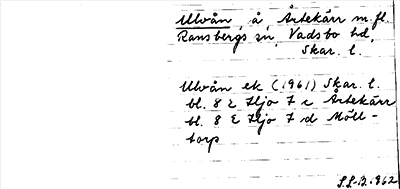 Ulvån, å, Årtekärr m.fl.
Ransbergs sn, Vadsbo hd,
Skar. l.
Ulvån ek (1961) Skar. l.
bl. 8 E Hjo 7 c Årtekärr
bl. 8 E Hjo 7 d Möll-
torp
S.L-B. 1962